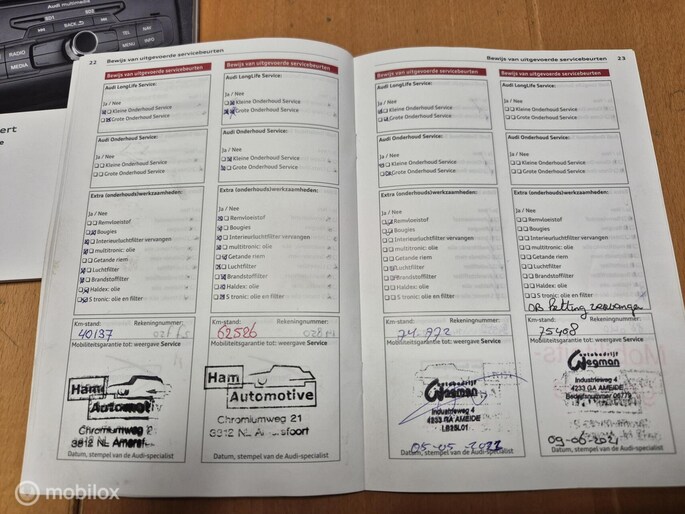 Audi multimedia
RADIO
MEDIA
BACK
NAV
TEL
MENU
INFO
ert
e
22
Bewijs van uitgevoerde servicebeurten
Bewijs van uitgevoerde servicebeurten
Audi LongLife Service:
Ja / Nee
Kleine Onderhoud Service
Grote Onderhoud Service
Audi Onderhoud Service:
Ja / Nee
Kleine Onderhoud Service
Grote Onderhoud Service
Extra (onderhouds)werkzaamheden:
Ja / Nee
Remvloeistof
Bougies
Interieurluchtfilter vervangen
multitronic: olie
Getande riem
Luchtfilter
Brandstoffilter
Haldex: olie
S tronic: olie en filter
Km-stand: Rekeningnummer:
40137
Mobiliteitsgarantie tot: weergave Service
Ham
Automotive
Chromiumweg 2
3812 NL Amersf
Datum, stempel van de Audi-specialist
Bewijs van uitgevoerde servicebeurten
Audi LongLife Service:
Ja / Nee
Kleine Onderhoud Service
Grote Onderhoud Service
Audi Onderhoud Service:
Ja / Nee
Kleine Onderhoud Service
Grote Onderhoud Service
Extra (onderhouds)werkzaamheden:
Ja / Nee
Remvloeistof
Bougies
Interieurluchtfilter vervangen
multitronic: olie
Getande riem
Luchtfilter
Brandstoffilter
Haldex: olie
S tronic: olie en filter
Km-stand: Rekeningnummer:
62526
Mobiliteitsgarantie tot: weergave Service
Ham
Automotive
Chromiumweg 21
3812 NL Amersfoort
Datum, stempel van de Audi-specialist
Bewijs van uitgevoerde servicebeurten
23
Bewijs van uitgevoerde servicebeurten
Audi LongLife Service:
Ja / Nee
Kleine Onderhoud Service
Grote Onderhoud Service
Audi Onderhoud Service:
Ja / Nee
Kleine Onderhoud Service
Grote Onderhoud Service
Extra (onderhouds)werkzaamheden:
Ja / Nee
Remvloeistof
Bougies
Interieurluchtfilter vervangen
multitronic: olie
Getande riem
Luchtfilter
Brandstoffilter
Haldex: olie
S tronic: olie en filter
Km-stand: Rekeningnummer:
74.972
Mobiliteitsgarantie tot: weergave Service
autobedrijf
Wegman
Industrieweg 4
4233 GA AMEIDE
05-05-2022
Datum, stempel van de Audi-specialist
Bewijs van uitgevoerde servicebeurten
Audi LongLife Service:
Ja / Nee
Kleine Onderhoud Service
Grote Onderhoud Service
Audi Onderhoud Service:
Ja / Nee
Kleine Onderhoud Service
Grote Onderhoud Service
Extra (onderhouds)werkzaamheden:
Ja / Nee
Remvloeistof
Bougies
Interieurluchtfilter vervangen
multitronic: olie
Getande riem
Luchtfilter
Brandstoffilter
Haldex: olie
S tronic: olie en filter
Km-stand: Rekeningnummer:
75408
Mobiliteitsgarantie tot: weergave Service
autobedrijf
Wegman
Industrieweg 4
4233 GA AMEIDE
Bedrijfsnummer
Datum, stempel van de Audi-specialist
mobilox